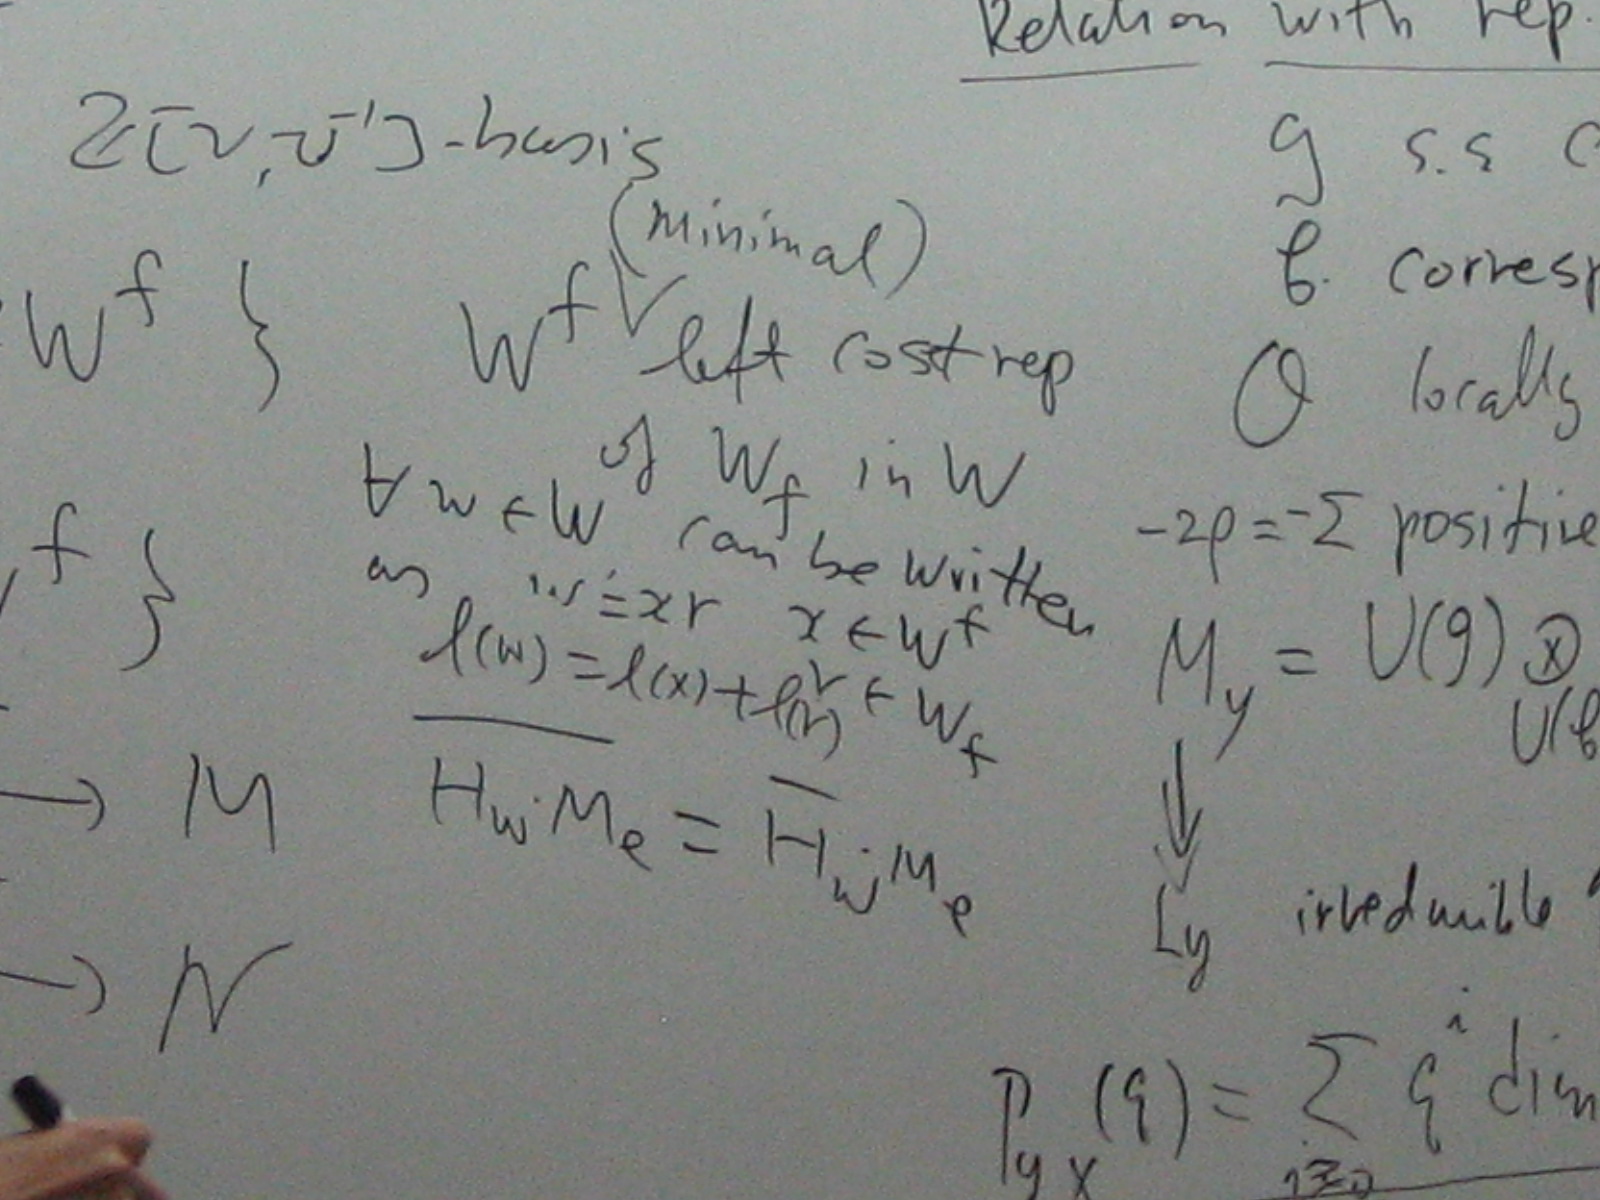 Z[v, v⁻¹]-basis
(minimal)
W^f } W^f left coset rep
of W_f in W
f } ∀ w ∈ W can be written
as w = xr x ∈ W^f
l(w) = l(x) + l(r) r ∈ W_f
→ M \overline{H_w · M_e} = \overline{H}_w M_e
→ N
Relation with rep.
g s.s
b corresp
O locally
-2ρ = -Σ positive
M_y = U(g) ⊗
U(b
↓
L_y irreducible
P_{y x}(q) = Σ_{i≥0} q^i dim